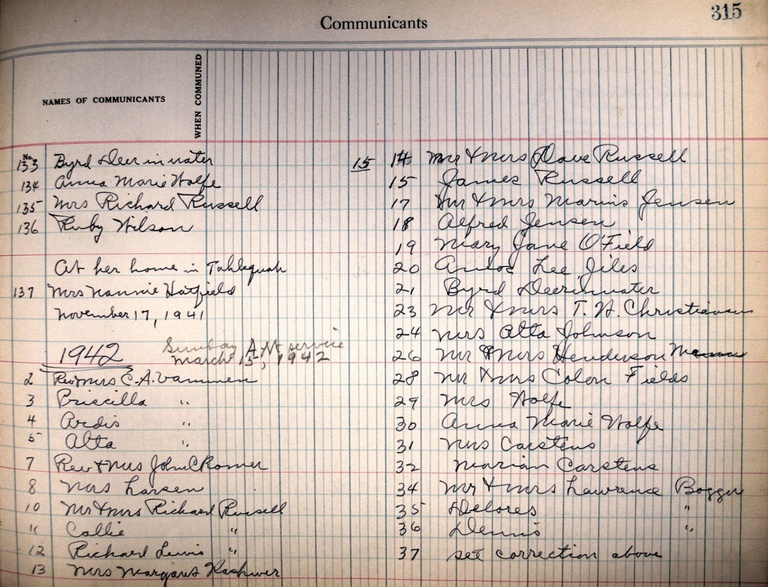 315
Communicants
NAMES OF COMMUNICANTS
WHEN COMMUNED
No.
133 Byrd Deerinwater
134 Anna Marie Wolfe
135 Mrs Richard Russell
136 Ruby Wilson
At her home in Tahlequah
137 Mrs Nannie Hatfield
November 17, 1941
1942 Sunday A.M. service
March 15, 1942
2 Rev Mrs C.A.
3 Priscilla "
4 Ardis "
5 Alta "
7 Rev & Mrs John C Romer
8 Mrs Larsen
10 Mr & Mrs Richard Russell
11 Callie "
12 Richard Lewis "
13 Mrs Margaret
15 14 Mr & Mrs Dave Russell
15 James Russell
17 Mr & Mrs Marius Jensen
18 Alfred Jensen
19 Mary Jane O'Field
20 Amos Lee Jiles
21 Byrd Deerinwater
23 Mr & Mrs T. H. Christiansen
24 Mrs Alta Johnson
26 Mr & Mrs Henderson
28 Mr & Mrs Colon Fields
29 Mrs Wolfe
30 Anna Marie Wolfe
31 Mrs Carstens
32 Marian Carstens
34 Mr & Mrs Lawrence Bogger
35 Delores "
36 Dennis "
37 see correction above